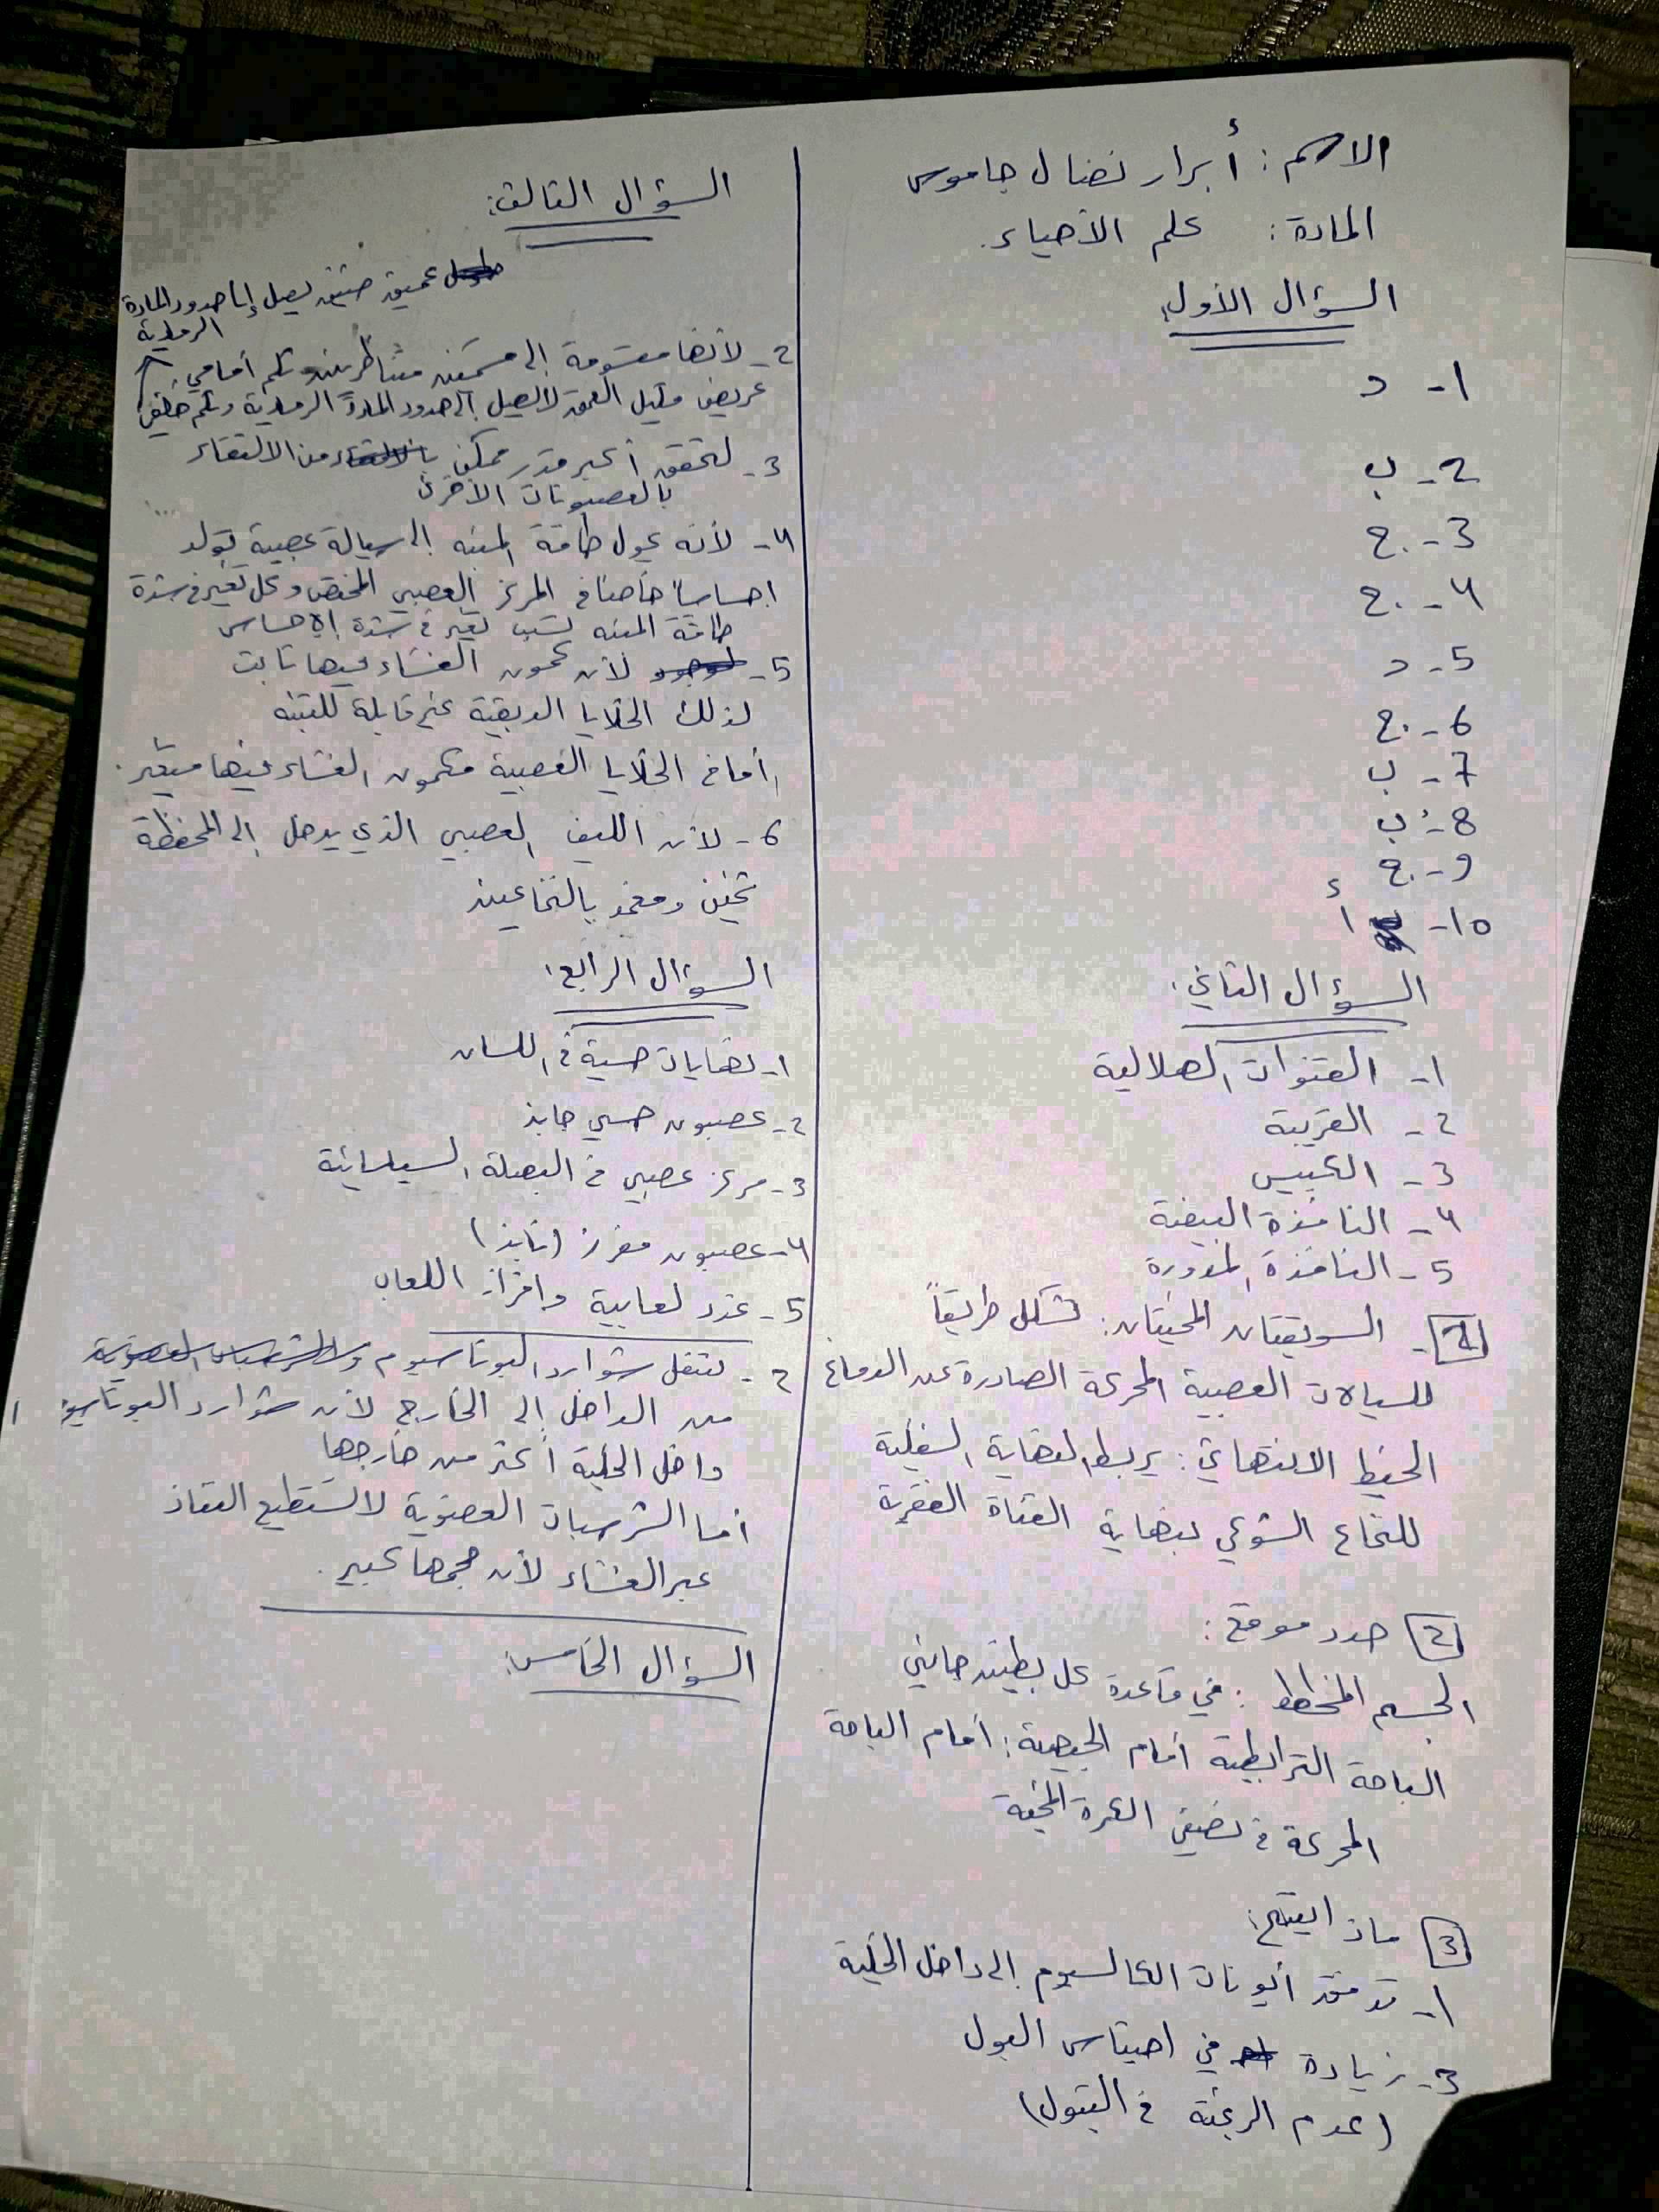 الاسم : أبرار نضال جاموس
المادة : علم الأحياء.
السؤال الأول:
1- د
2- ب
3- ج
4- ج
5- د
6- ج
7- ب
8- ب
9- ج
10- أ
السؤال الثاني:
1- القنوات الهلالية
2- القريبة
3- الكييس
4- النافذة البيضية
5- النافذة المدورة
1- السويقتان المخيتان: تشكل طريقاً
للسيالات العصبية المحركة الصادرة عن الدماغ
الخيط الانتهائي: يربط النهاية السفلية
للنخاع الشوكي بنهاية القناة الفقرية
2 حدد موقع:
الجسم المخطط : في قاعدة كل بطين جانبي
الباحة الترابطية أمام الجبهية: أمام الباحة
المحركة في نصفي الكرة المخية
3 ماذا ينتج:
1- تدفق أيونات الكالسيوم إلى داخل الخلية
3- زيادة في احتباس البول
(عدم الرغبة في التبول)
السؤال الثالث:
عميق ضيق يصل إلى حدود المادة
الرمادية
2- لأنها مقسومة إلى قسمين متناظرين وثلم أمامي
عريض قليل العمق لا يصل إلى حدود المادة الرمادية وثلم خلفي
3- لتحقق أكبر قدر ممكن من الالتقاء
بالعصبونات الأخرى
4- لأنه يحول طاقة المنبه إلى سيالة عصبية تولد
احساساً خاصاً في المركز العصبي المختص وكل تغير في شدة
طاقة المنبه يسبب تغير في شدة الإحساس
5- لأن كمون الغشاء فيها ثابت
لذلك الخلايا الدبقية غير قابلة للتنبه
أما في الخلايا العصبية فكمون الغشاء فيها متغير.
6- لأن الليف العصبي الذي يدخل إلى المحفظة
ثخين ومغمد بالنخاعين
السؤال الرابع:
1- نهايات حسية في اللسان
2- عصبون حسي جابذ
3- مركز عصبي في البصلة السيسائية
4- عصبون مفرز (نابذ)
5- غدد لعابية وإفراز اللعاب
2- تنتقل شوارد البوتاسيوم
من الداخل إلى الخارج لأن شوارد البوتاسيوم
داخل الخلية أكثر من خارجها
أما الشرسبات العضوية لا تستطيع النفاذ
عبر الغشاء لأن حجمها كبير.
السؤال الخامس: